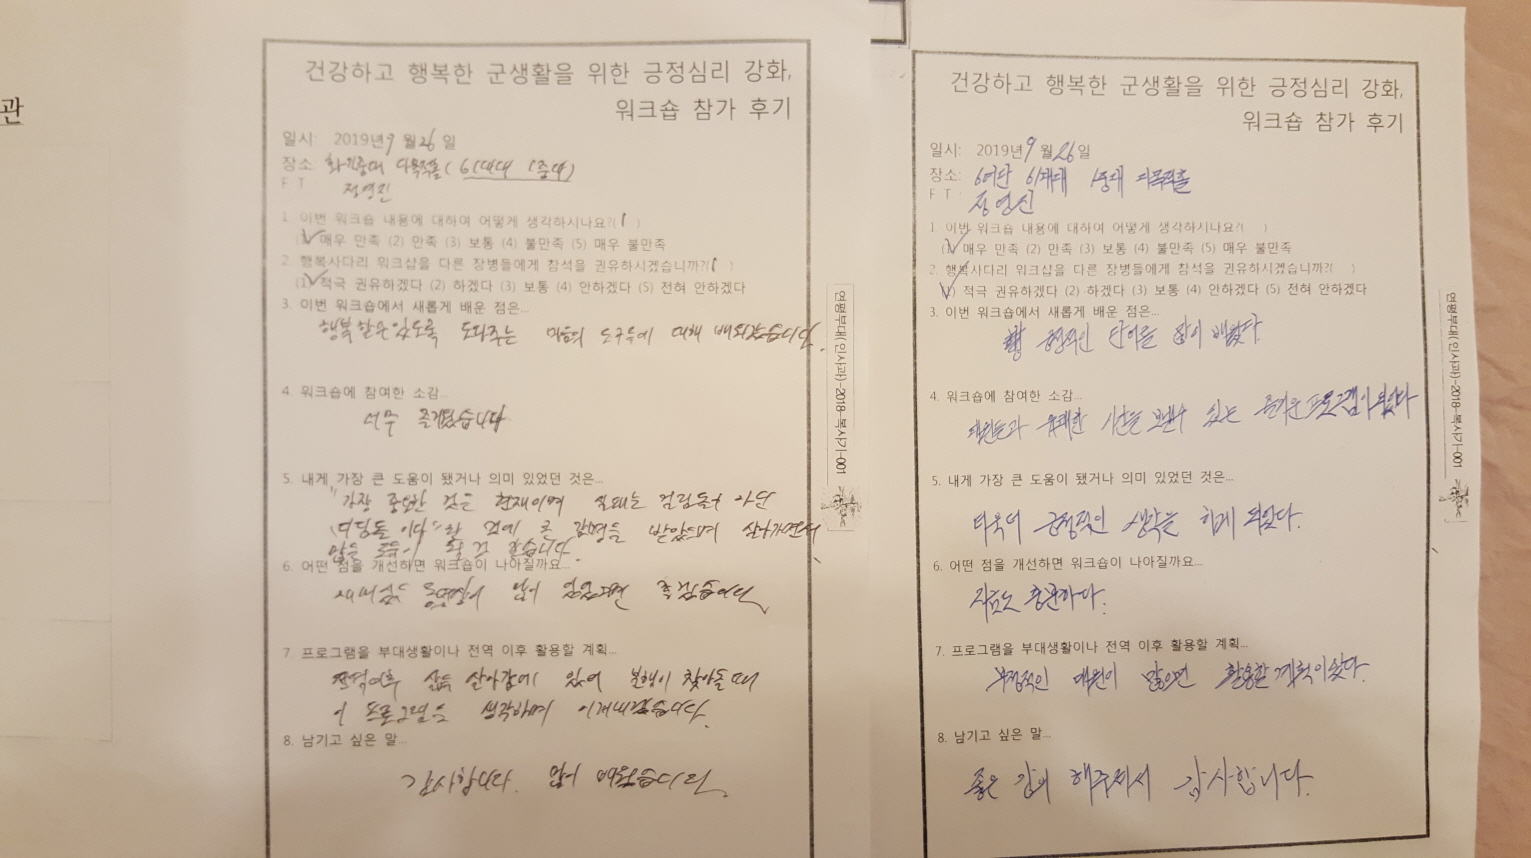 관
건강하고 행복한 군생활을 위한 긍정심리 강화,
워크숍 참가 후기
일시: 2019년 9월 26일
장소: 화기중대 다목적홀( 61대대 1중대)
F T 정영진
1. 이번 워크숍 내용에 대하여 어떻게 생각하시나요?(1 )
(1) 매우 만족 (2) 만족 (3) 보통 (4) 불만족 (5) 매우 불만족
2. 행복사다리 워크샵을 다른 장병들에게 참석을 권유하시겠습니까?(1 )
(1) 적극 권유하겠다 (2) 하겠다 (3) 보통 (4) 안하겠다 (5) 전혀 안하겠다
3. 이번 워크숍에서 새롭게 배운 점은...
행복할수있도록 도와주는 마음의 도구들에 대해 배워갔습니다.
4. 워크숍에 참여한 소감...
너무 즐거웠습니다.
5. 내게 가장 큰 도움이 됐거나 의미 있었던 것은...
"가장 중요한 것은 현재이며 실패는 걸림돌이 아닌
디딤돌 이다"란 것에 큰 감명을 받았으며 살아가면서
많은 도움이 될 것 같습니다.
6. 어떤 점을 개선하면 워크숍이 나아질까요...
동영상이 많이 있었으면 좋겠습니다.
7. 프로그램을 부대생활이나 전역 이후 활용할 계획...
전역이후 삶을 살아감에 있어 불행이 찾아올 때
이 프로그램을 생각하며 이겨내겠습니다.
8. 남기고 싶은 말...
감사합니다. 많이 배웠습니다.
연평부대(인사과)-2018-복사기-001
건강하고 행복한 군생활을 위한 긍정심리 강화,
워크숍 참가 후기
일시: 2019년 9월 26일
장소: 6여단 61대대 1중대 다목적홀
F T : 정영진
1. 이번 워크숍 내용에 대하여 어떻게 생각하시나요?( )
(1) 매우 만족 (2) 만족 (3) 보통 (4) 불만족 (5) 매우 불만족
2. 행복사다리 워크샵을 다른 장병들에게 참석을 권유하시겠습니까?( )
(1) 적극 권유하겠다 (2) 하겠다 (3) 보통 (4) 안하겠다 (5) 전혀 안하겠다
3. 이번 워크숍에서 새롭게 배운 점은...
긍정적인 단어를 많이 배웠다.
4. 워크숍에 참여한 소감...
대원들과 유쾌한 시간을 보낼수 있는 즐거운 프로그램이 되었다
5. 내게 가장 큰 도움이 됐거나 의미 있었던 것은...
더욱더 긍정적인 생각을 하게 되었다.
6. 어떤 점을 개선하면 워크숍이 나아질까요...
지금도 충분하다.
7. 프로그램을 부대생활이나 전역 이후 활용할 계획...
부정적인 대원이 많으면 활용할 계획이있다.
8. 남기고 싶은 말...
좋은 강의 해주셔서 감사합니다.
연평부대(인사과)-2018-복사기-001